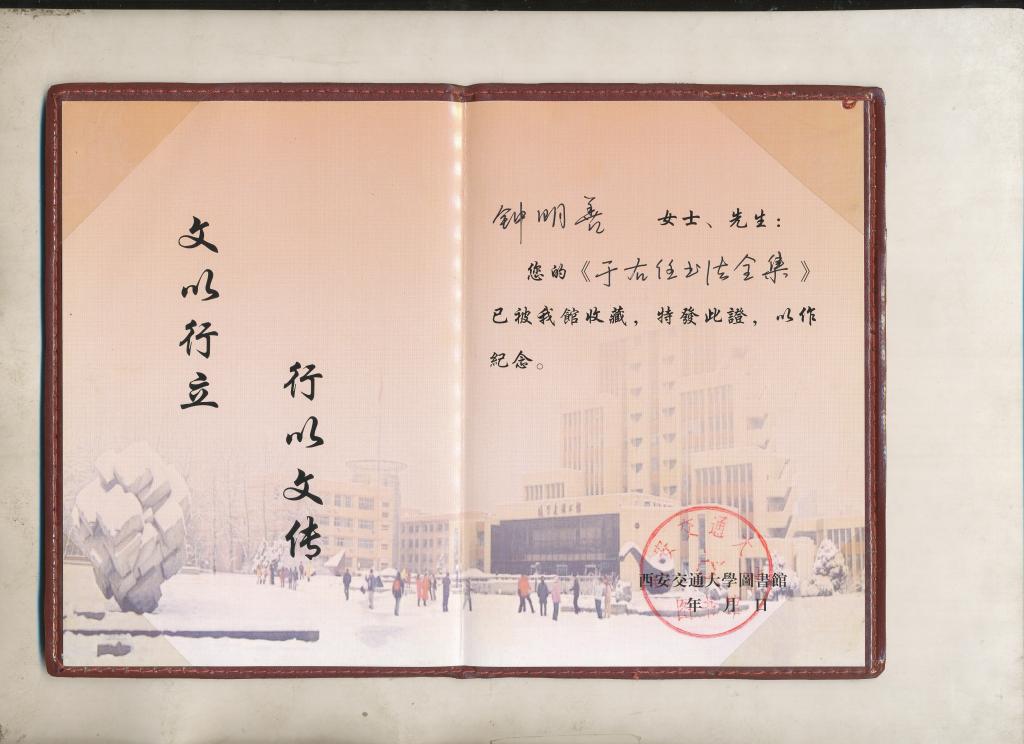 文以行立
行以文传
钟明善 女士、先生：
您的《于右任书法全集》
已被我館收藏，特發此證，以作
紀念。
西安交通大學圖書館
年 月 日
安交通大